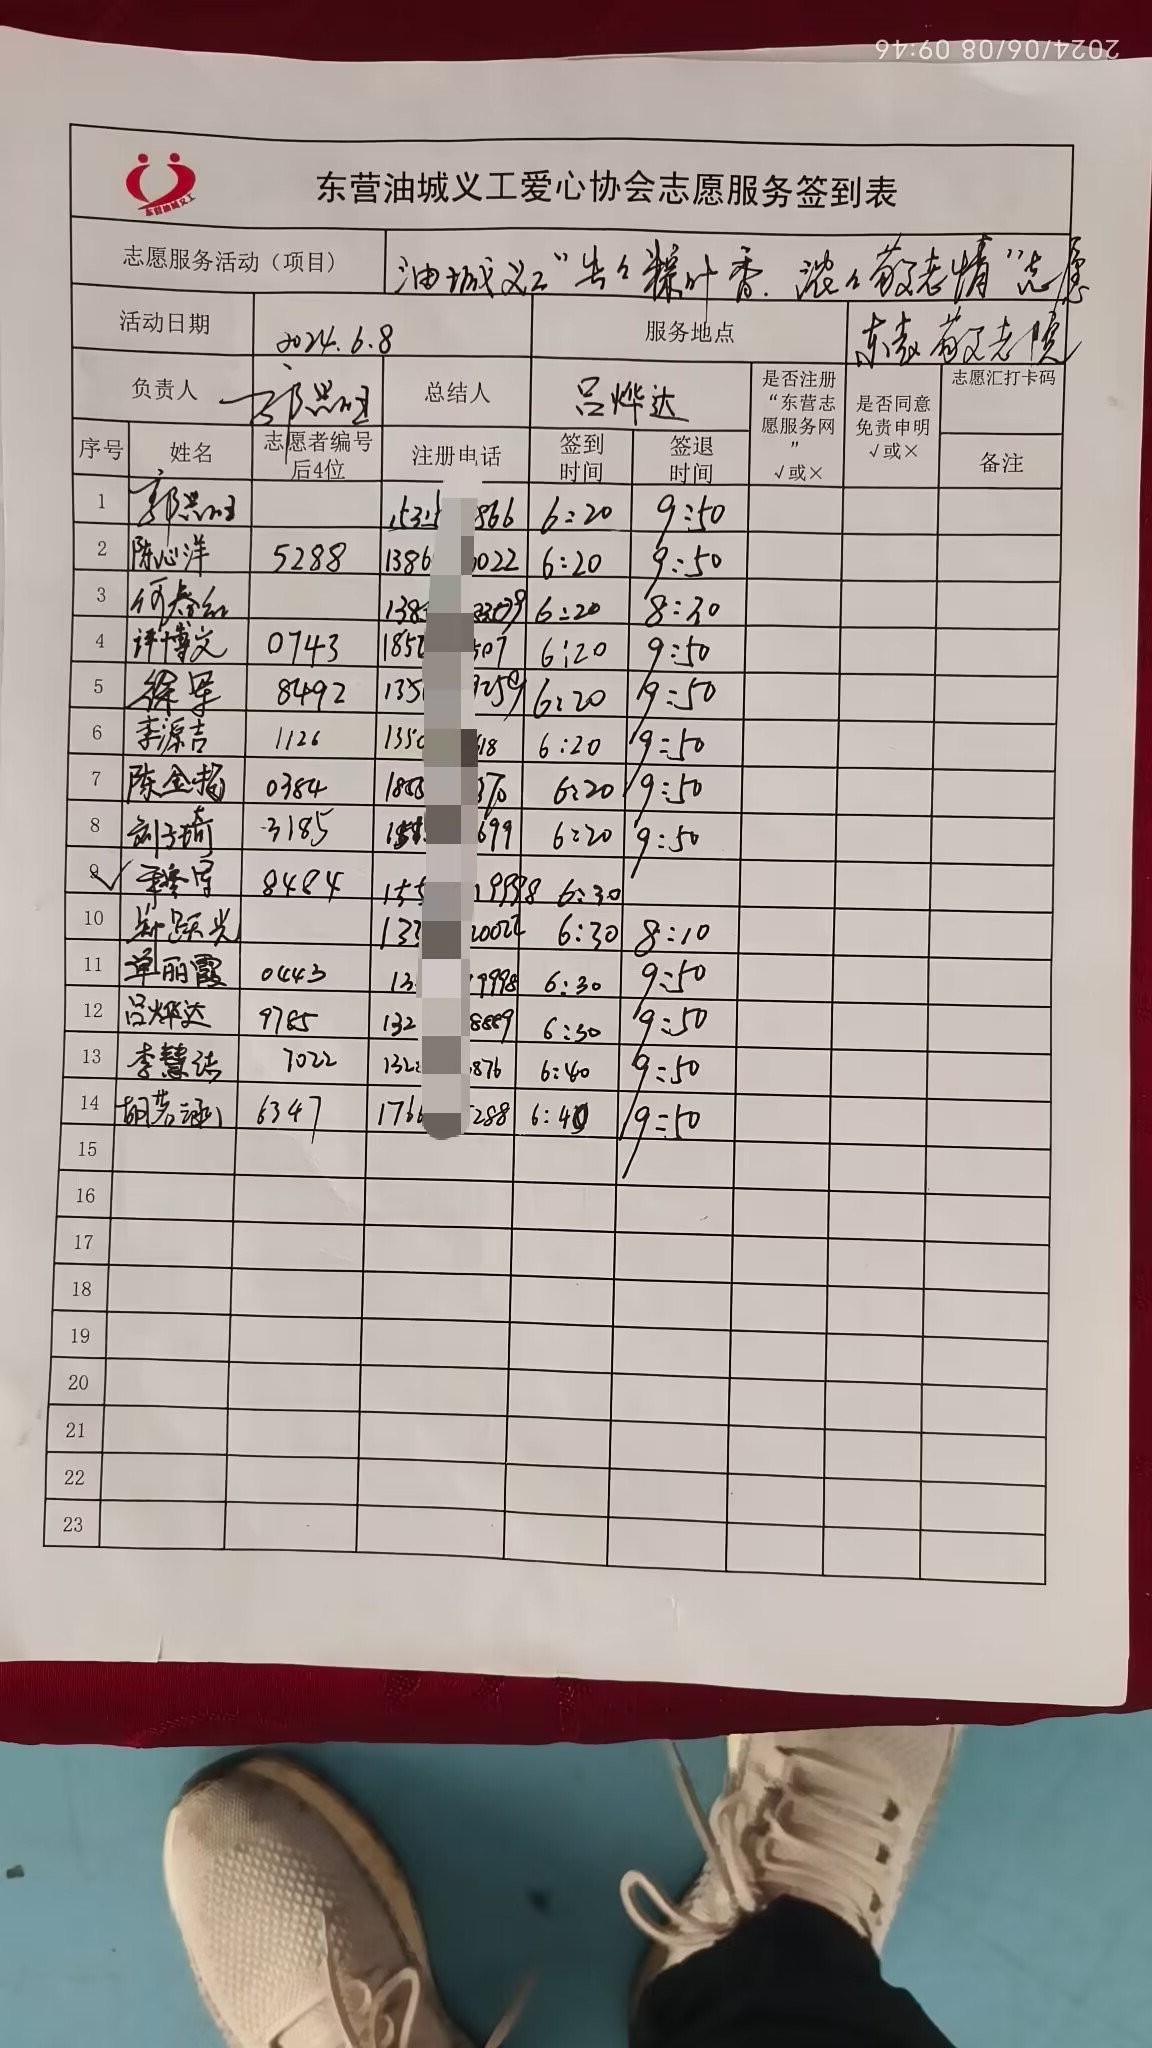 2024/06/08 09:46
东营油城义工爱心协会志愿服务签到表
东营油城义工
志愿服务活动（项目） 油城义工“片片粽叶香.浓浓敬老情”志愿
活动日期 2024.6.8 服务地点 东敬老院
负责人 总结人 吕烨达 是否注册“东营志愿服务网” √或× 是否同意免责申明 √或× 志愿汇打卡码
序号 姓名 志愿者编号后4位 注册电话 签到时间 签退时间 备注
1 866 6:20 9:50
2 陈心洋 5288 138 022 6:20 9:50
3 138 6:20 8:30
4 许博文 0743 185 507 6:20 9:50
5 徐军 8492 135 6:20 9:50
6 李源吉 1126 1350 618 6:20 9:50
7 陈金梅 0384 370 6:20 9:50
8 刘子琦 3185 699 6:20 9:50
9 8484 155 19998 6:30
10 133 6:30 8:10
11 单丽霞 0443 13 9998 6:30 9:50
12 吕烨达 9785 132 8889 6:30 9:50
13 李慧洁 7022 132 876 6:40 9:50
14 胡若涵 6347 176 288 6:40 9:50
15
16
17
18
19
20
21
22
23